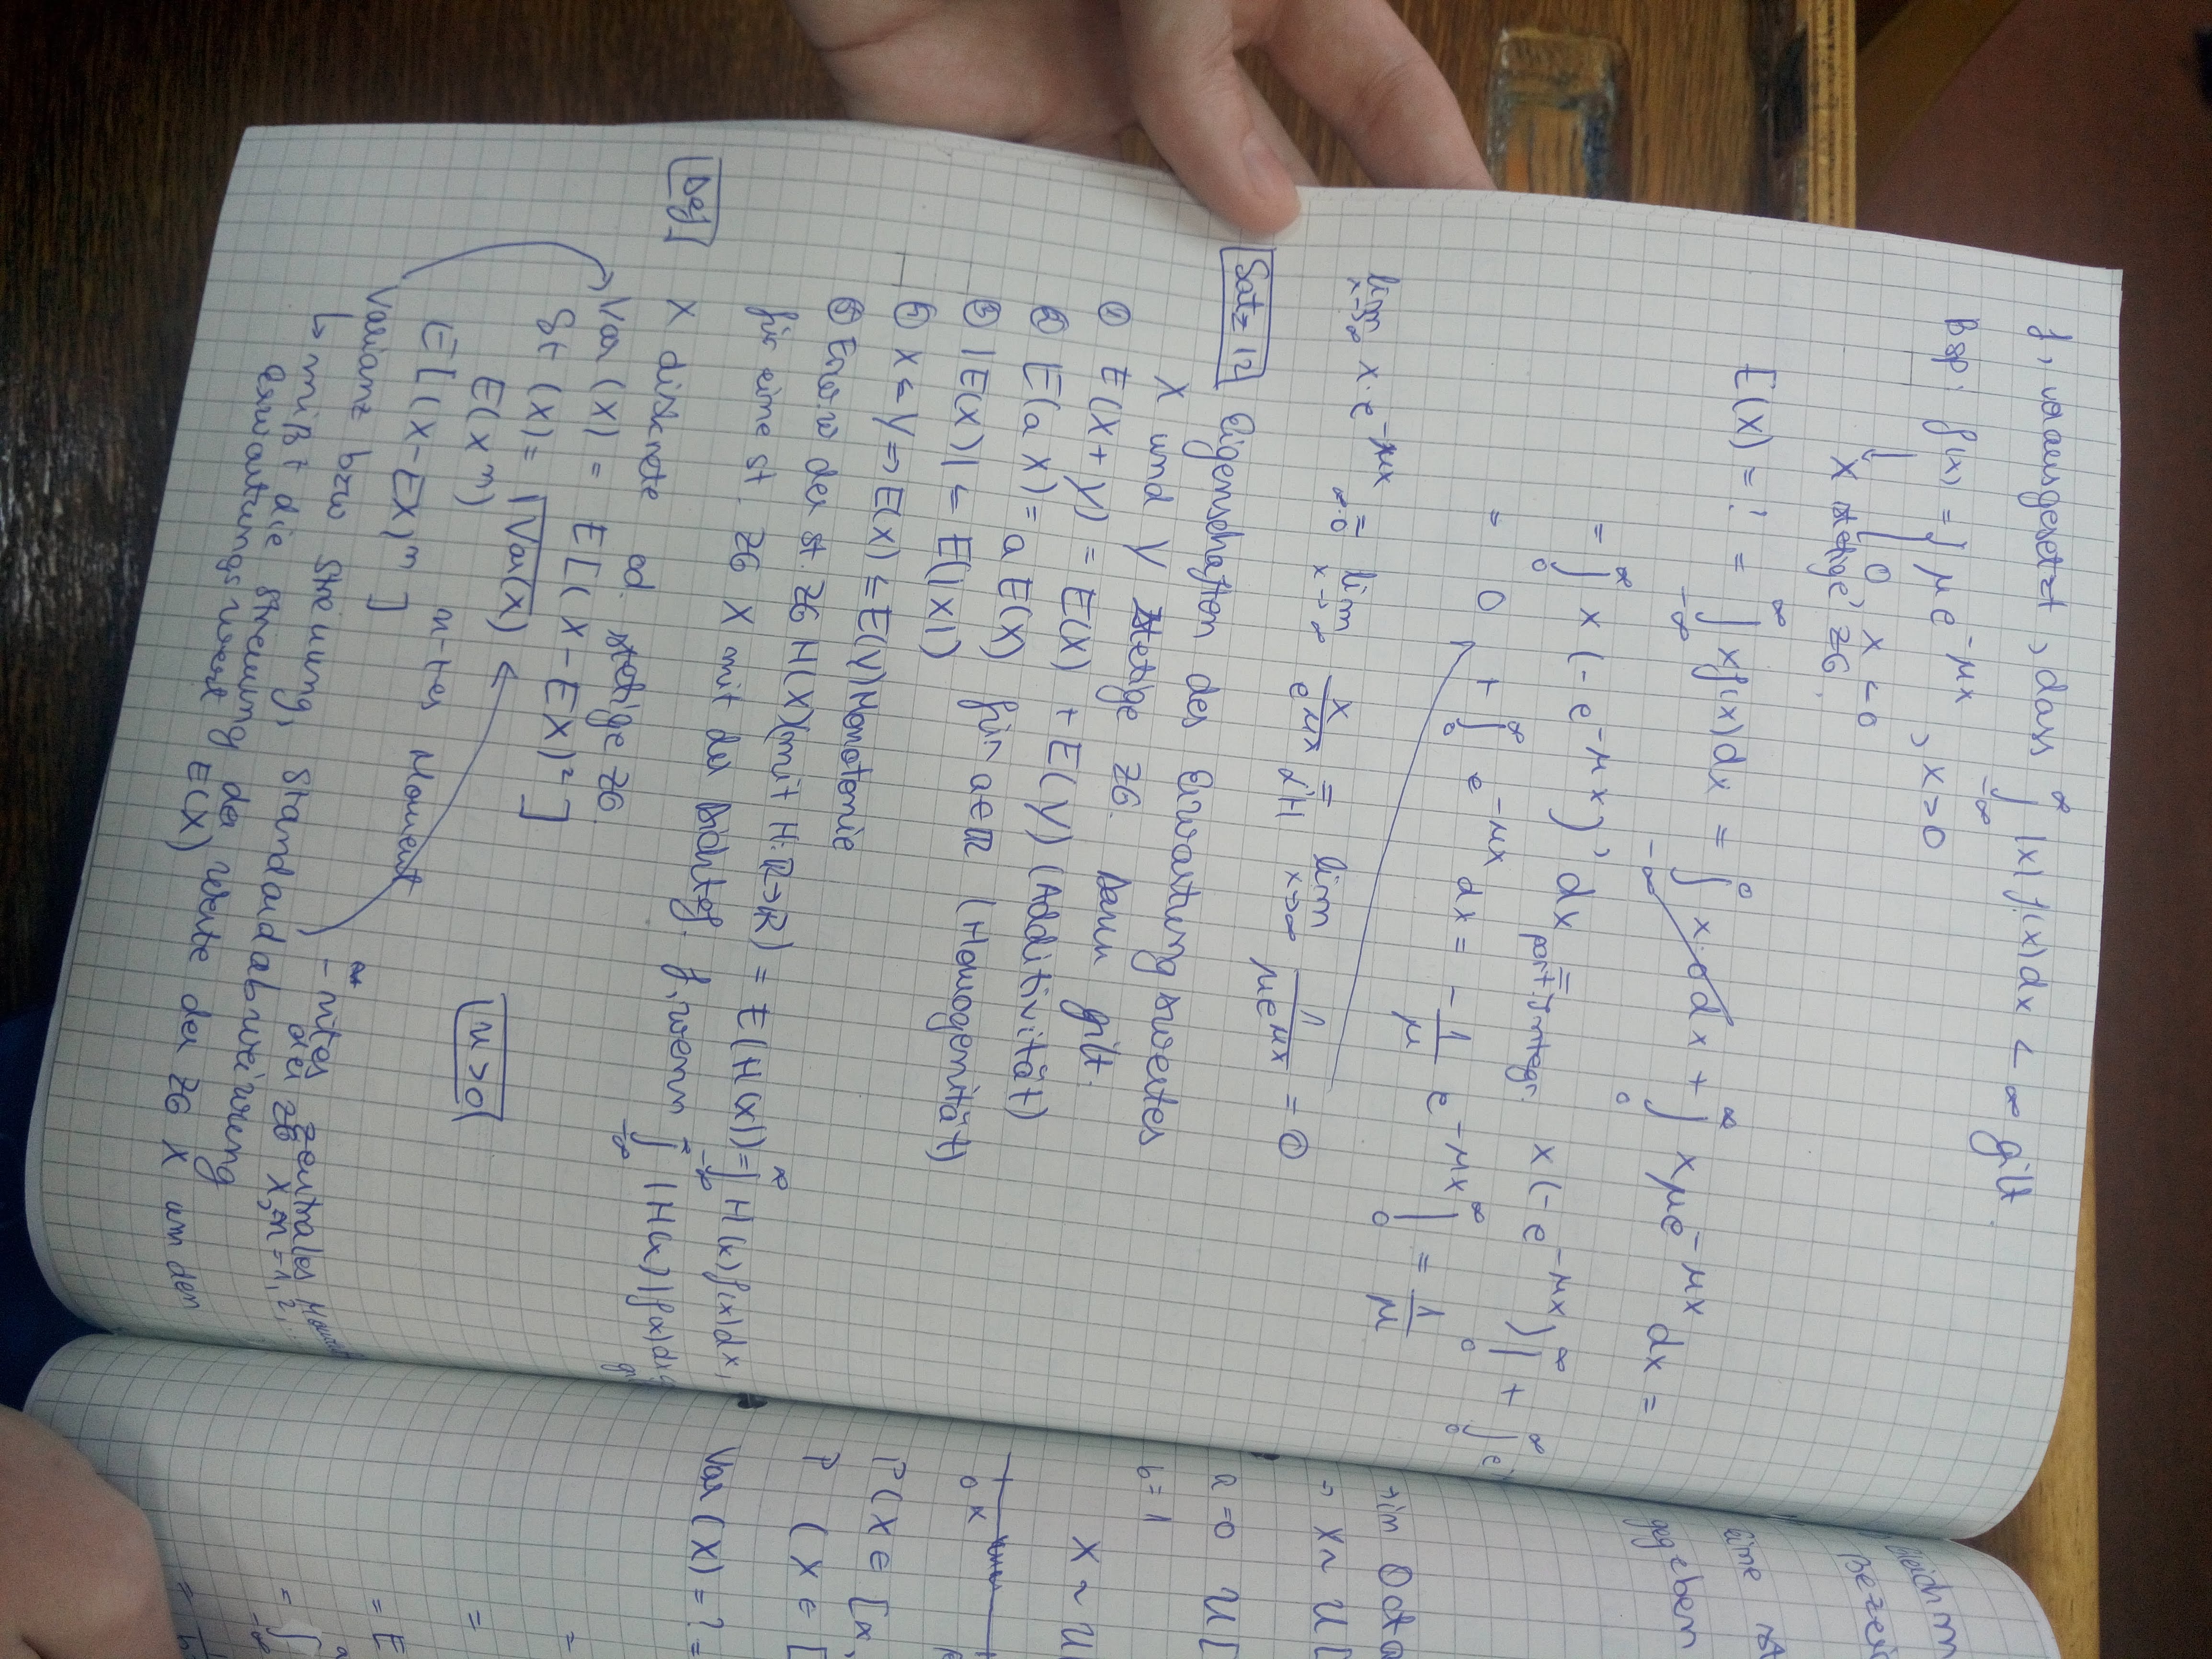 f, vorausgesetzt, dass ∫_{-∞}^{∞} |x| f(x) dx < ∞ gilt.
Bsp: f(x) = { μe^{-μx}, x>0
0, x<0
↓
X stetige ZG.
E(X) = ? = ∫_{-∞}^{∞} x f(x) dx = ∫_{-∞}^{0} x·0 dx + ∫_{0}^{∞} xμe^{-μx} dx =
= ∫_{0}^{∞} x(-e^{-μx})' dx = part. Integr. x(-e^{-μx})|_{0}^{∞} + ∫_{0}^{∞} e
= 0 + ∫_{0}^{∞} e^{-μx} dx = -1/μ e^{-μx}|_{0}^{∞} = 1/μ
lim_{x→∞} x·e^{-μx} =_{∞·0} lim_{x→∞} x/e^{μx} =_{L'H} lim_{x→∞} 1/(μe^{μx}) = 0
Satz 12 Eigenschaften des Erwartungswertes
X und Y stetige ZG. Dann gilt:
① E(X+Y) = E(X) + E(Y) (Additivität)
② E(aX) = a E(X) für a∈ℝ (Homogenität)
③ |E(X)| ≤ E(|X|)
④ X ≤ Y ⇒ E(X) ≤ E(Y) Monotonie
⑤ Erw.w der st. ZG H(X) (mit H:ℝ→ℝ) = E(H(X)) = ∫_{-∞}^{∞} H(x) f(x) dx,
für eine st. ZG X mit der Dichtef. f, wenn ∫_{-∞}^{∞} |H(x)| f(x) dx <
Def X diskrete od. stetige ZG.
Var(X) = E[(X-EX)²]
St(X) = √Var(X)
n>0
E(X^n) n-tes Moment
E[(X-EX)^n] - ntes zentrales Moment
der ZG X, n=1,2,...
Varianz bzw Streuung, Standardabweichung
↳ mißt die Streuung der Werte der ZG X um den
Erwartungswert E(X)
Gleichm
Bezei
eine st
gegeben
→ in Octa
→ X~ U[
a=0 U[
b=1
X ~ U
0 x
P(X ∈ [x,
P (X ∈ [
Var(X) = ? =
=
=
= E
= ∫_{-∞}
=